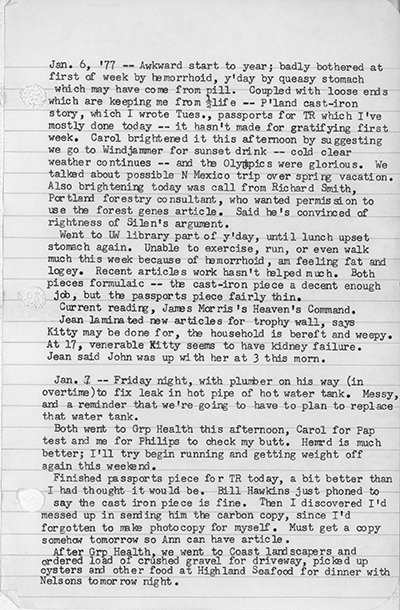 Jan. 6, '77 -- Awkward start to year; badly bothered at
first of week by hemorrhoid, y'day by queasy stomach
which may have come from pill. Coupled with loose ends
which are keeping me from ½life -- P'land cast-iron
story, which I wrote Tues., passports for TR which I've
mostly done today -- it hasn't made for gratifying first
week. Carol brightened it this afternoon by suggesting
we go to Windjammer for sunset drink -- cold clear
weather continues -- and the Olympics were glorious. We
talked about possible N Mexico trip over spring vacation.
Also brightening today was call from Richard Smith,
Portland forestry consultant, who wanted permission to
use the forest genes article. Said he's convinced of
rightness of Silen's argument.
Went to UW library part of y'day, until lunch upset
stomach again. Unable to exercise, run, or even walk
much this week because of hemorrhoid, am feeling fat and
logey. Recent articles work hasn't helped much. Both
pieces formulaic -- the cast-iron piece a decent enough
job, but the passports piece fairly thin.
Current reading, James Morris's Heaven's Command.
Jean laminated new articles for trophy wall, says
Kitty may be done for, the household is bereft and weepy.
At 17, venerable Kitty seems to have kidney failure.
Jean said John was up with her at 3 this morn.
Jan. 7 -- Friday night, with plumber on his way (in
overtime)to fix leak in hot pipe of hot water tank. Messy,
and a reminder that we're going to have to plan to replace
that water tank.
Both went to Grp Health this afternoon, Carol for Pap
test and me for Philips to check my butt. Hemrd is much
better; I'll try begin running and getting weight off
again this weekend.
Finished passports piece for TR today, a bit better than
I had thought it would be. Bill Hawkins just phoned to
say the cast iron piece is fine. Then I discovered I'd
messed up in sending him the carbon copy, since I'd
forgotten to make photocopy for myself. Must get a copy
somehow tomorrow so Ann can have article.
After Grp Health, we went to Coast landscapers and
ordered load of crushed gravel for driveway, picked up
oysters and other food at Highland Seafood for dinner with
Nelsons tomorrow night.